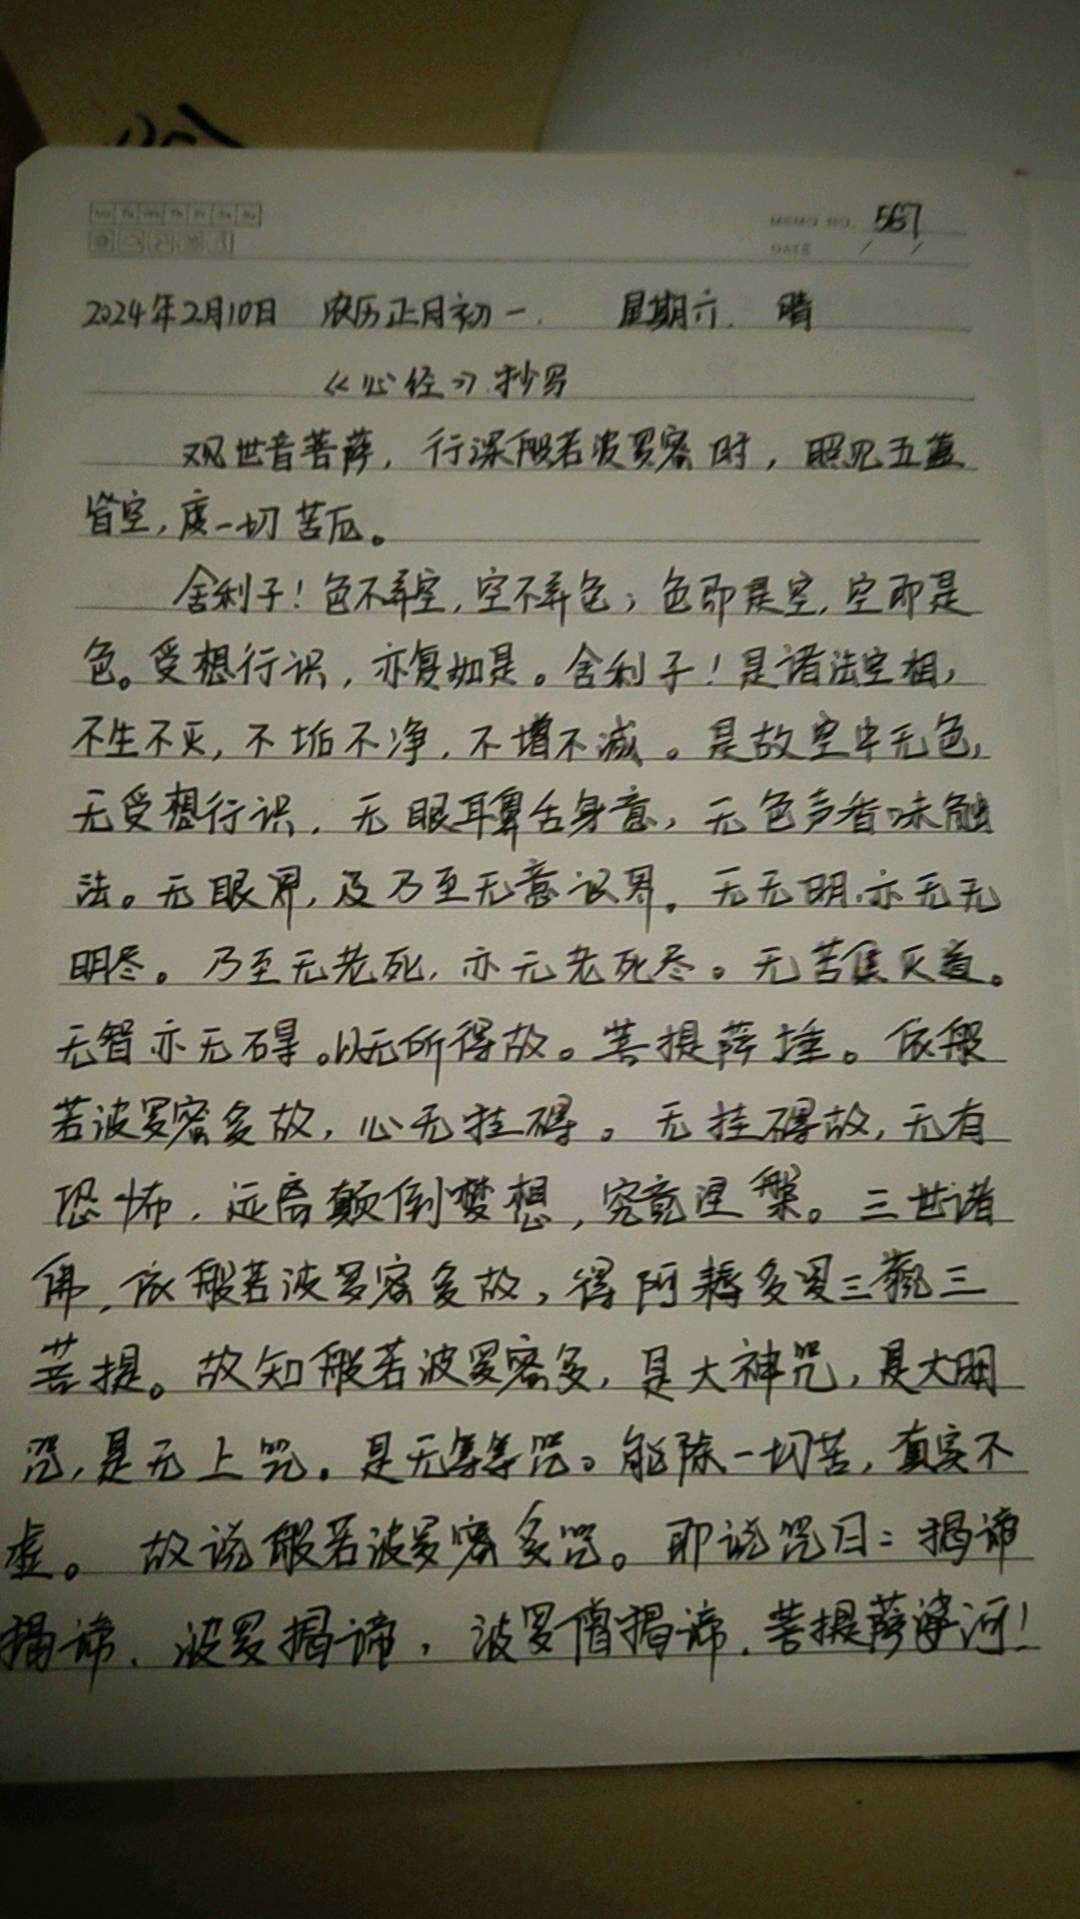 Mo Tu We Th Fr Sa Su
MEMO NO. 567
DATE / /
2024年2月10日 农历正月初一. 星期六. 晴
《心经》抄写
观世音菩萨,行深般若波罗密时,照见五蕴
皆空,度一切苦厄。
舍利子!色不异空,空不异色;色即是空,空即是
色。受想行识,亦复如是。舍利子!是诸法空相,
不生不灭,不垢不净,不增不减。是故空中无色,
无受想行识,无眼耳鼻舌身意,无色声香味触
法。无眼界,及乃至无意识界。无无明,亦无无
明尽。乃至无老死,亦无老死尽。无苦集灭道。
无智亦无碍。以无所得故。菩提萨埵。依般
若波罗密多故,心无挂碍。无挂碍故,无有
恐怖,远离颠倒梦想,究竟涅槃。三世诸
佛,依般若波罗密多故,得阿耨多罗三藐三
菩提。故知般若波罗密多,是大神咒,是大明
咒,是无上咒。是无等等咒。能除一切苦,真实不
虚。故说般若波罗密多咒。即说咒曰:揭谛
揭谛、波罗揭谛,波罗僧揭谛.菩提萨婆诃!